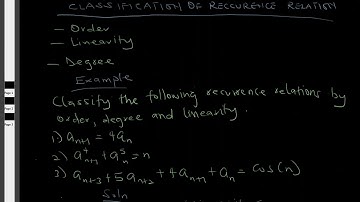 CLASSIFICATION OF RECCURENCE RELATION
— Order
— Linearity
— Degree
Example
Classify the following recurrence relations by
order, degree and linearity.
1) aₙ₊₁ = 4aₙ
2) a⁴ₙ₊₁ + a⁵ₙ = n
3) aₙ₊₃ + 5aₙ₊₂ + 4aₙ₊₁ + aₙ = cos(n)
Soln